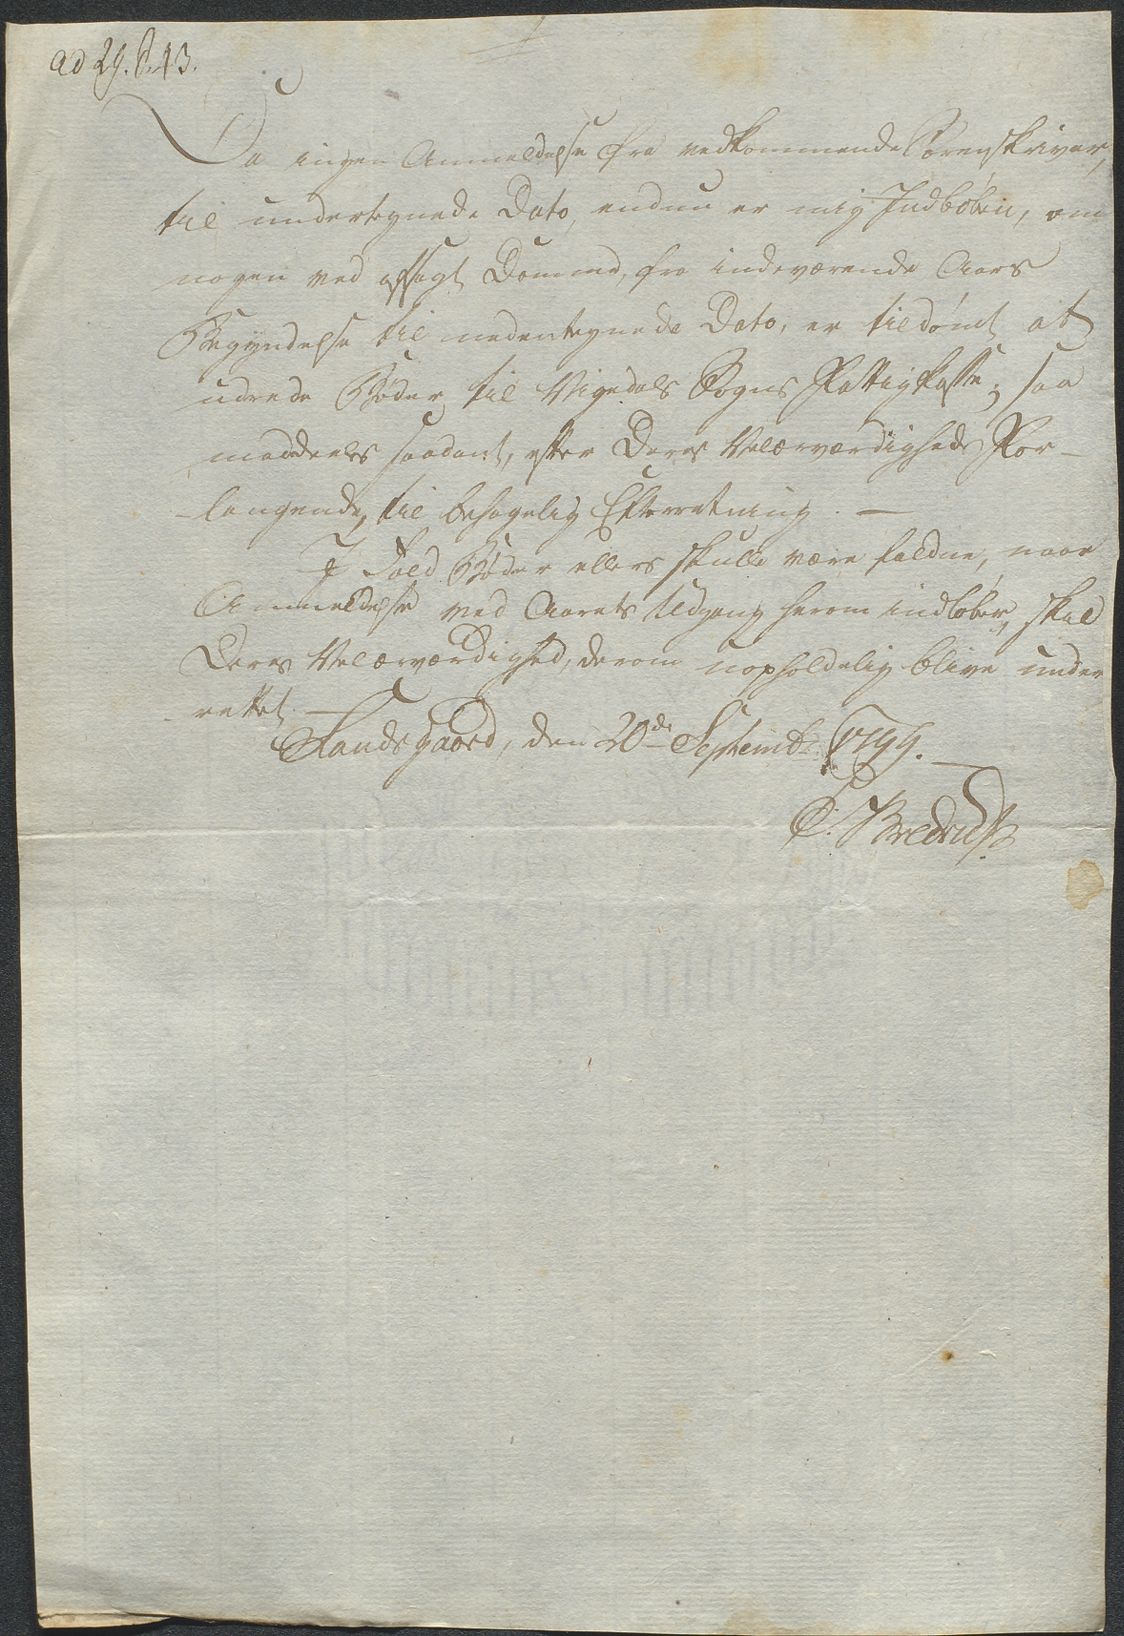 ad 29. 
Da ingen Anmeldelse fra vedkommende Sorenskriver,
til undertegnede Dato, endnu er mig Indløben, om
nogen ved afsagt Domme, fra indeværende Aars
Begyndelse til nedentegnede Dato, er tildømt at
udrede Bøder til Vigedals Sogns Fattigkasse; saa
meddeeles saadant, efter Deres Velærværdigheds For-
langende, til behagelig Efterretning. —
I Fald Bøder ellers skulle være faldne, naar
Anmeldelse ved Aarets Udgang herom indløber, skal
Deres Velærværdighed, derom uopholdelig blive under
rettet. —
Sandsgaard, den 20de Septemb: 1799.